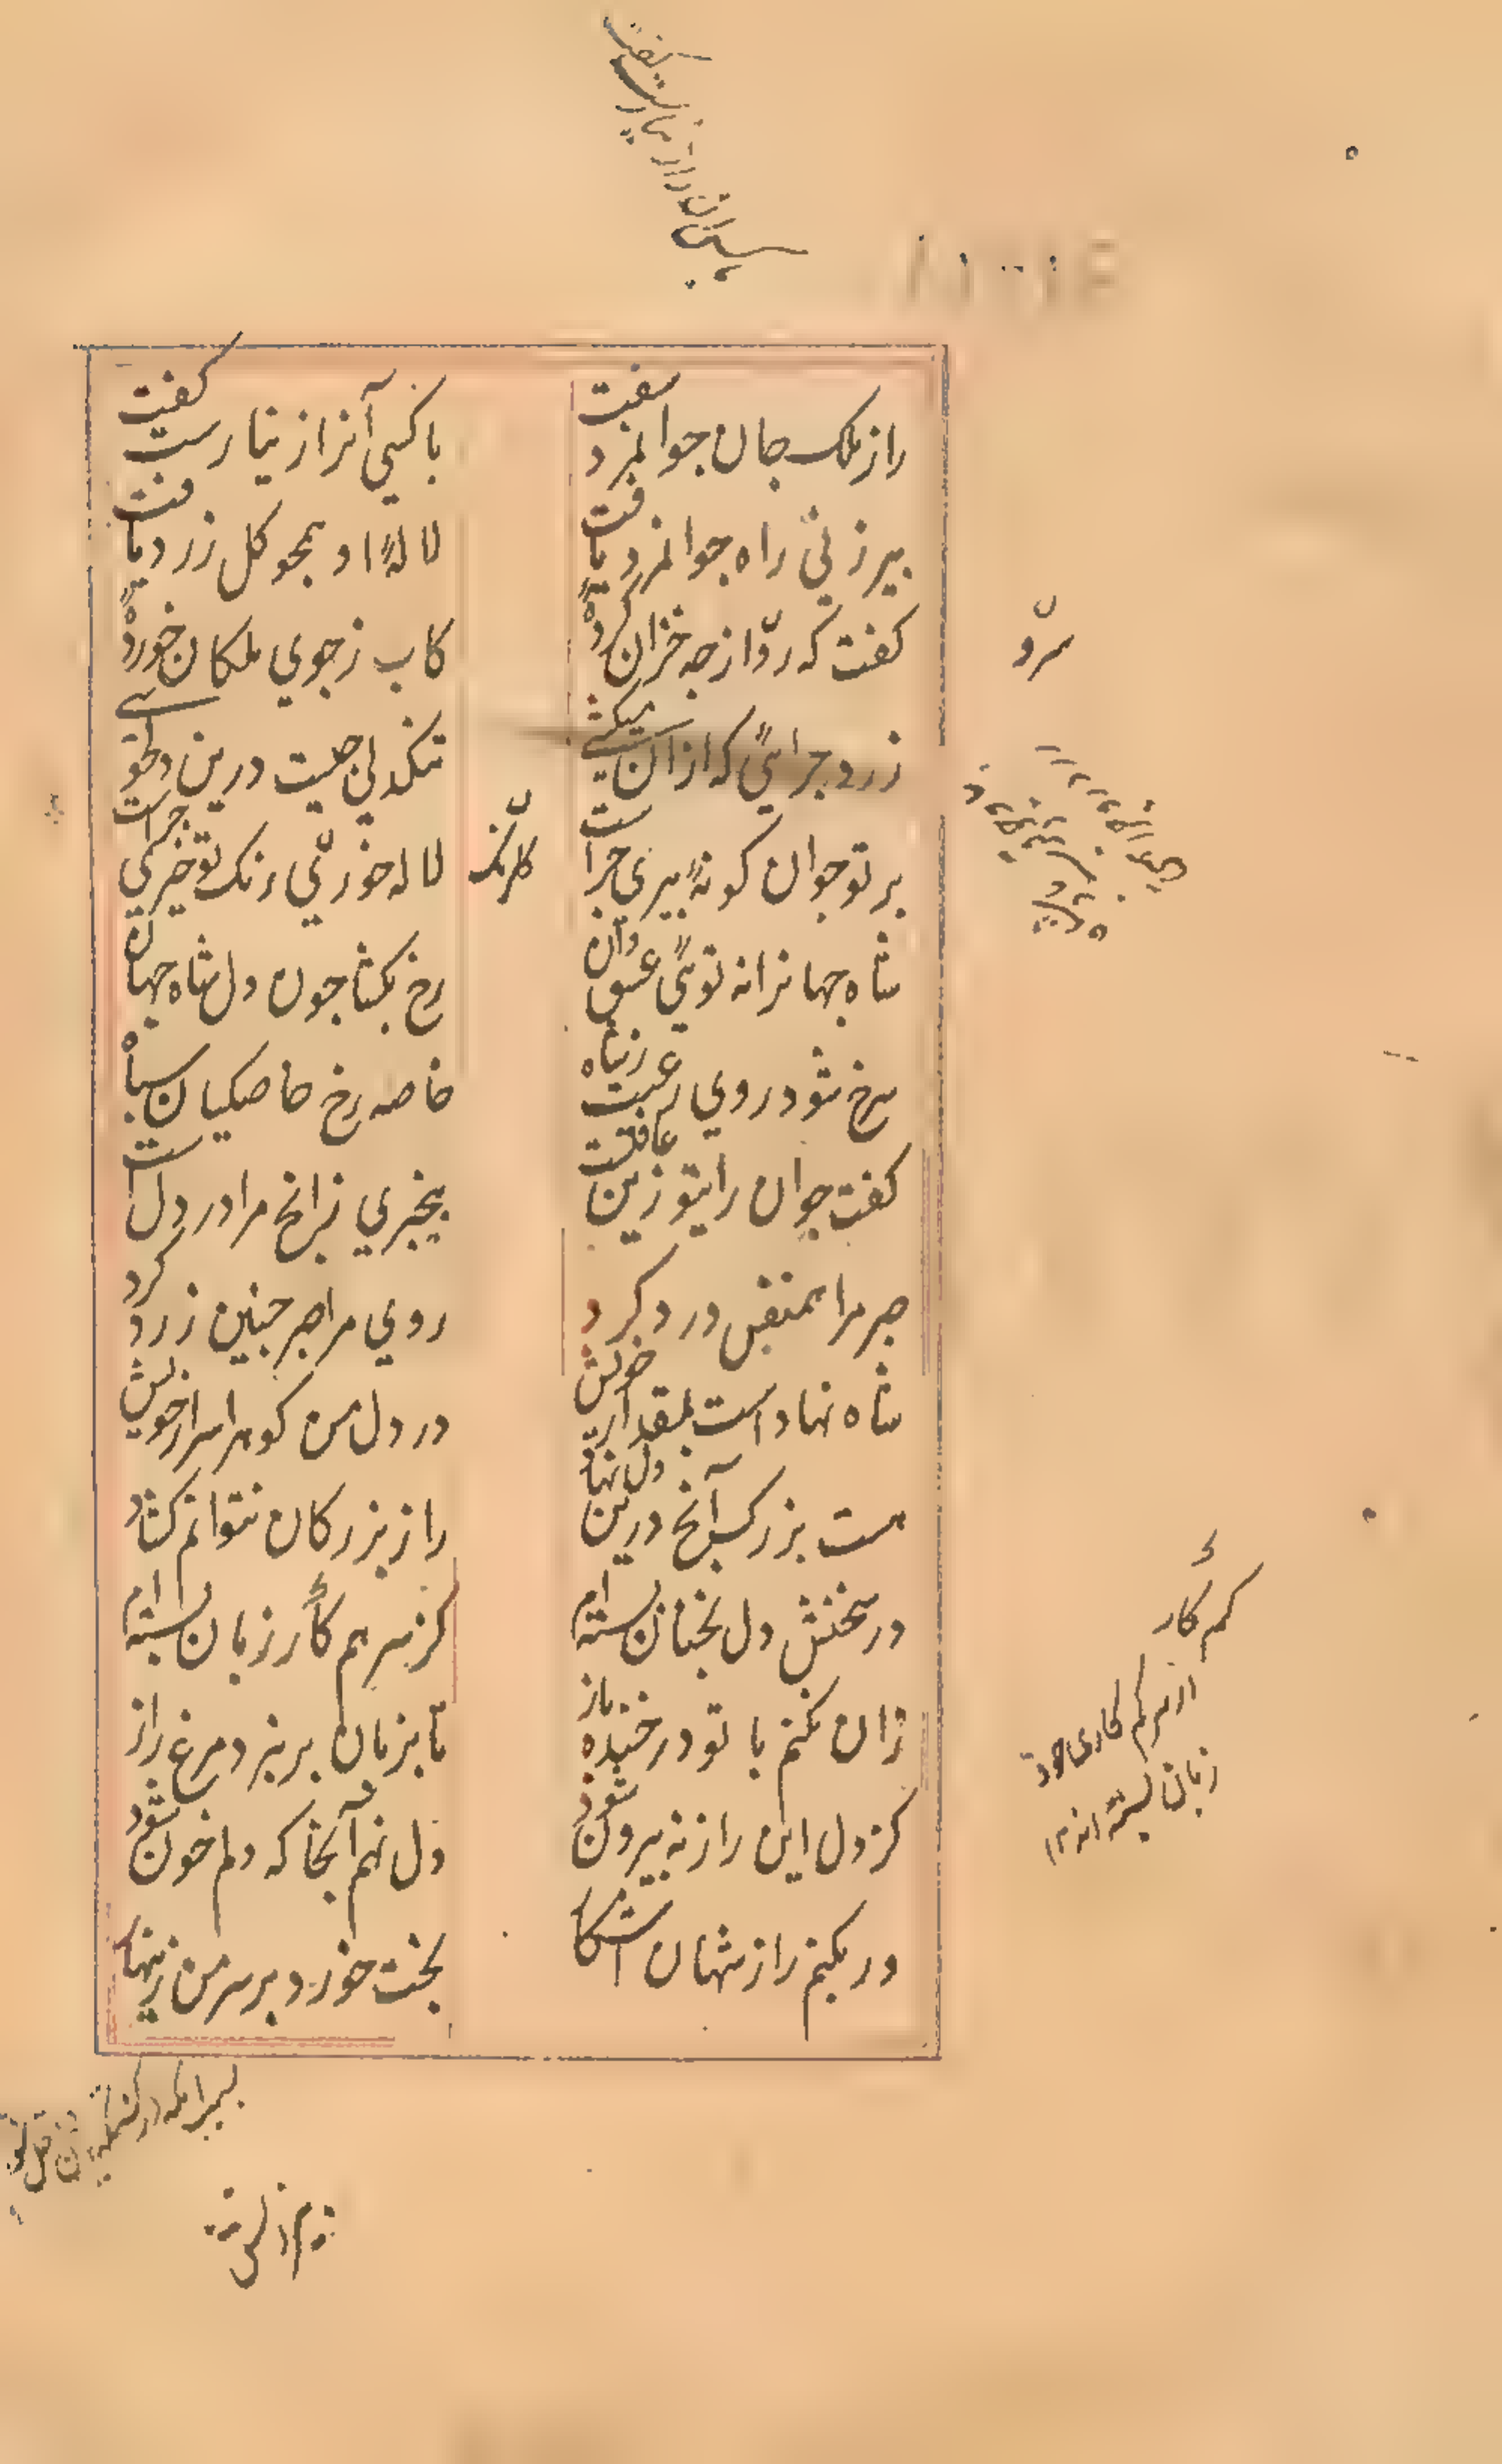 راز ملک جان جوانمرد سفت
باکسی آنراز نیارست کفت
پیرزنی راه جوانمرد یافت
لالهٔ او همچو کل زرد یافت
کفت که سرو از چه خزان کردهٔ
کاب ز جوی ملکان خوردهٔ
زرد چرایی که ازان میکشی
تنکدلی چیست درین دلخوشی
بر تو جوان کونهٔ پیری چراست
لاله خودرنک تو خیری چراست
شاه جهانرا نه تویی عیش دان
رخ بکشا چون دل شاه جهان
سرخ شود روی رعیت ز شاه
خاصه رخ خاصکیان سپاه
کفت جوان رای تو زین غافلست
بیخبری زانچ مرا در دلست
صبر مرا همنفس درد کرد
روی مرا صبر چنین زرد کرد
شاه نهادست بمقدار خویش
در دل من کوهر اسرار خویش
هست بزرک آنچ درین دل نهاد
راز بزرکان نتوانم کشاد
در سخنش دل نچنان بسته‌ام
کز سر هم کار زبان بسته‌ام
زان نکنم با تو در خنده باز
تا بزبان بر نپرد مرغ راز
کز دل این راز نه بیرون شود
دل نهم آنجا که دلم خون شود
ور بکنم راز شهان آشکار
بخت خورد بر سر من زینهار
سرو
کلرنک
کم کار
از سر کم کاری خود
زبان بسته‌اند ۱۲